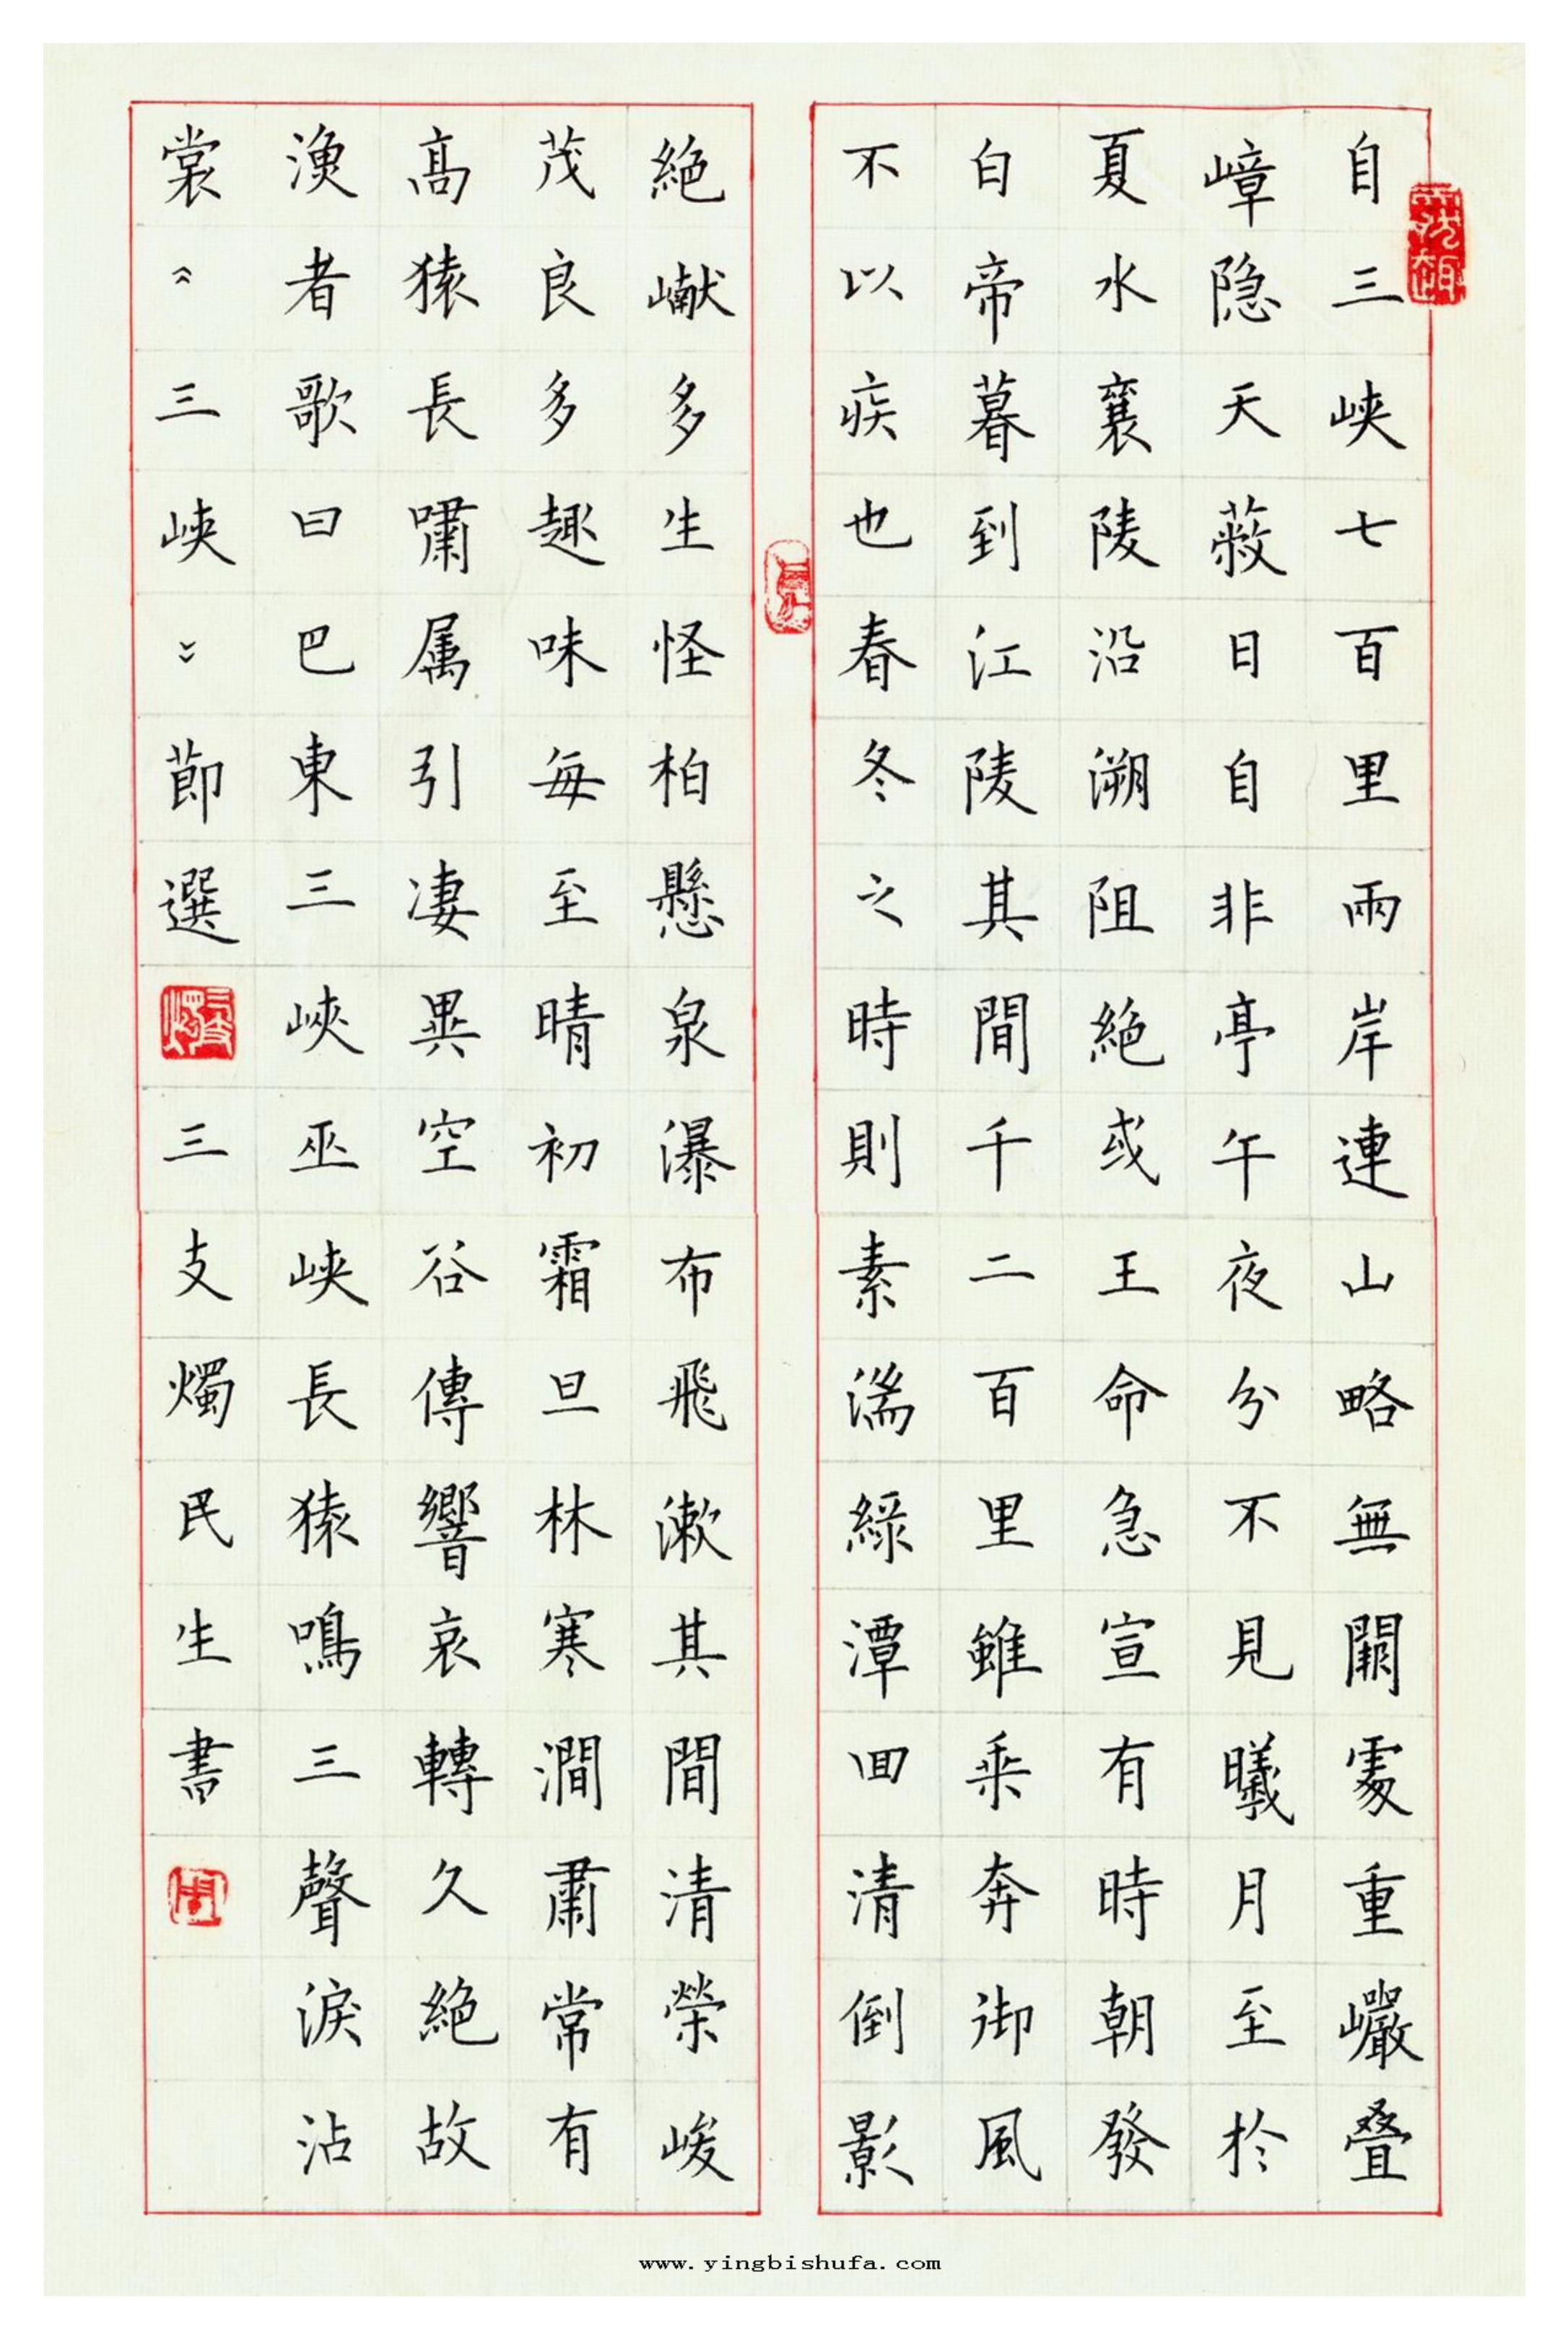 自三峡七百里兩岸連山略無闕處重巖叠
嶂隐天蔽日自非亭午夜分不見曦月至於
夏水襄陵沿溯阻絶或王命急宣有時朝發
白帝暮到江陵其間千二百里雖乘奔御風
不以疾也春冬之時則素湍綠潭回清倒影
絶巘多生怪柏懸泉瀑布飛漱其間清榮峻
茂良多趣味每至晴初霜旦林寒澗肅常有
高猿長嘯属引凄異空谷傳響哀轉久絶故
漁者歌曰巴東三峽巫峡長猿鳴三聲淚沾
裳︽三峡︾節選三支燭民生書
www.yingbishufa.com